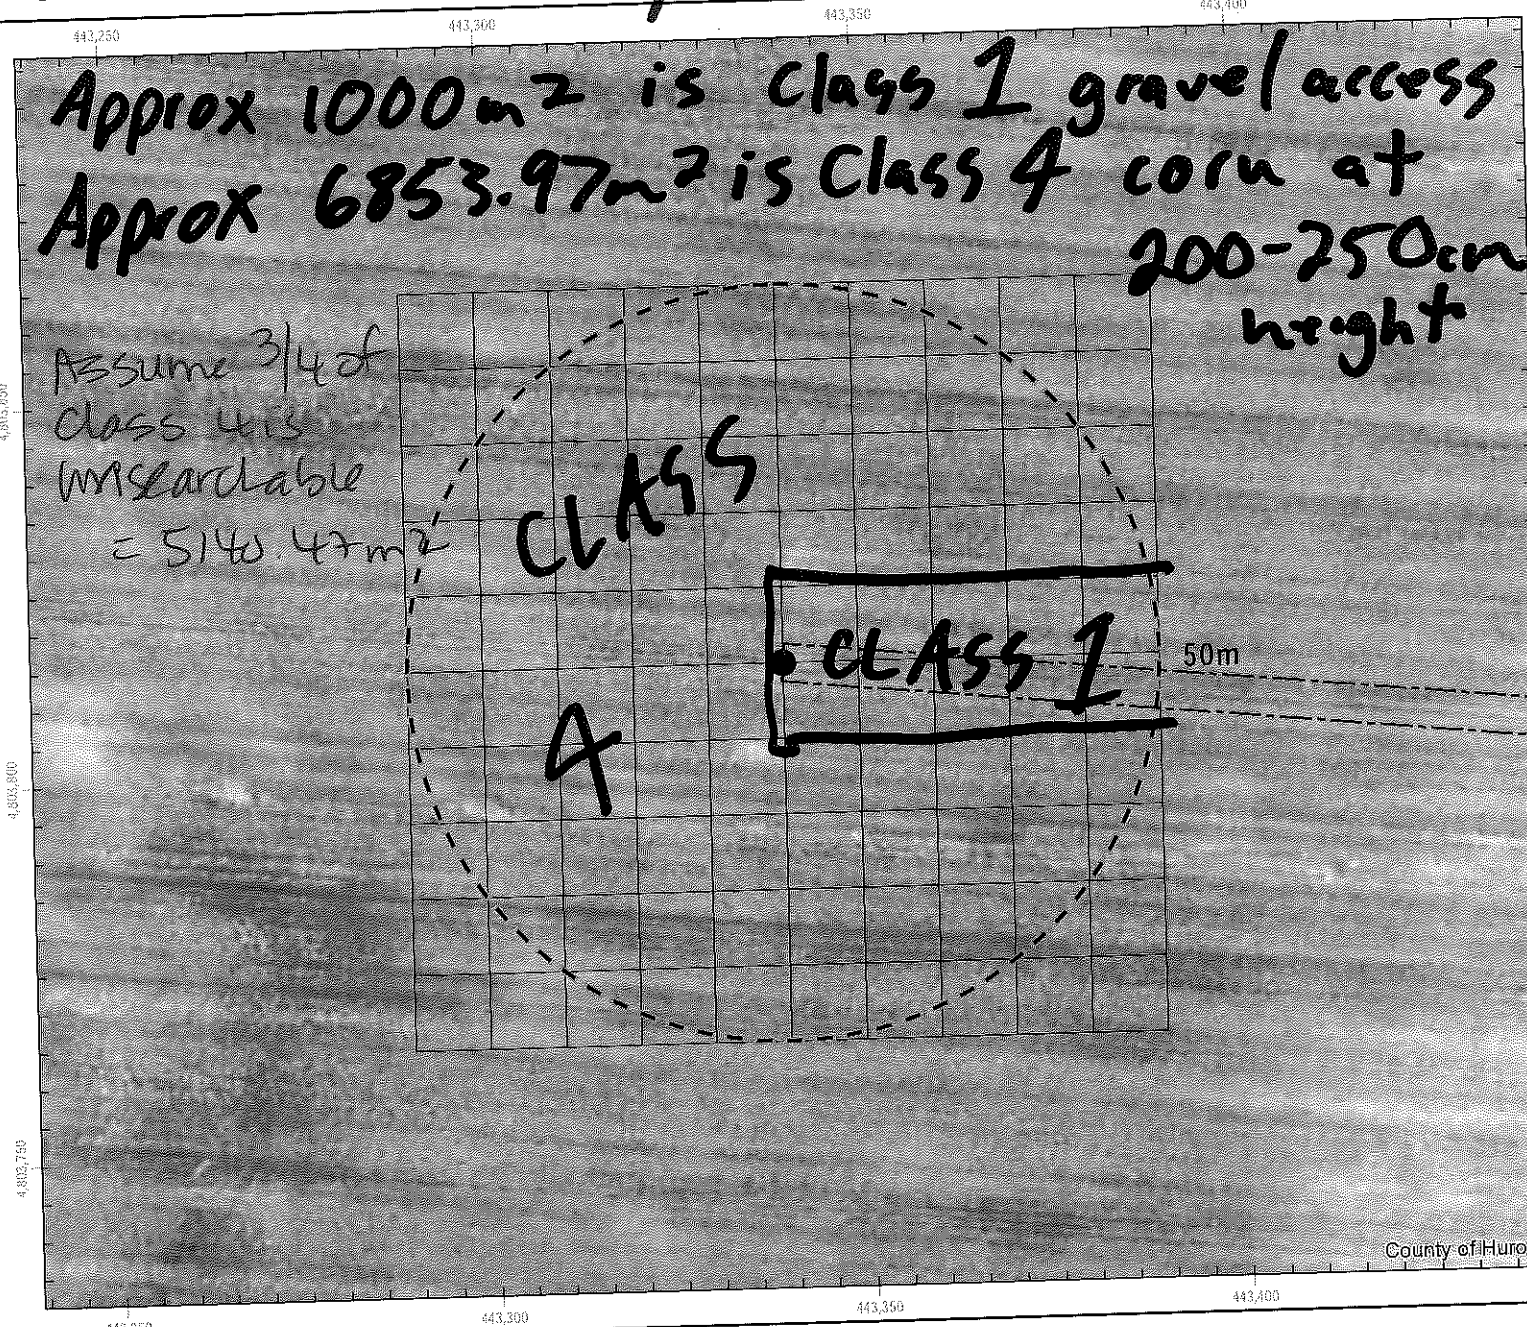 443,250 443,300 443,350 443,400
Approx 1000m² is Class 1 gravel access
Approx 6853.97m² is Class 4 corn at
200-250cm
height
Assume 3/4 of
Class 4 is
unsearchable
= 5140.47m²
CLASS
4
CLASS 1
50m
4,803,800
4,803,750
County of Huro
443,300 443,350 443,400